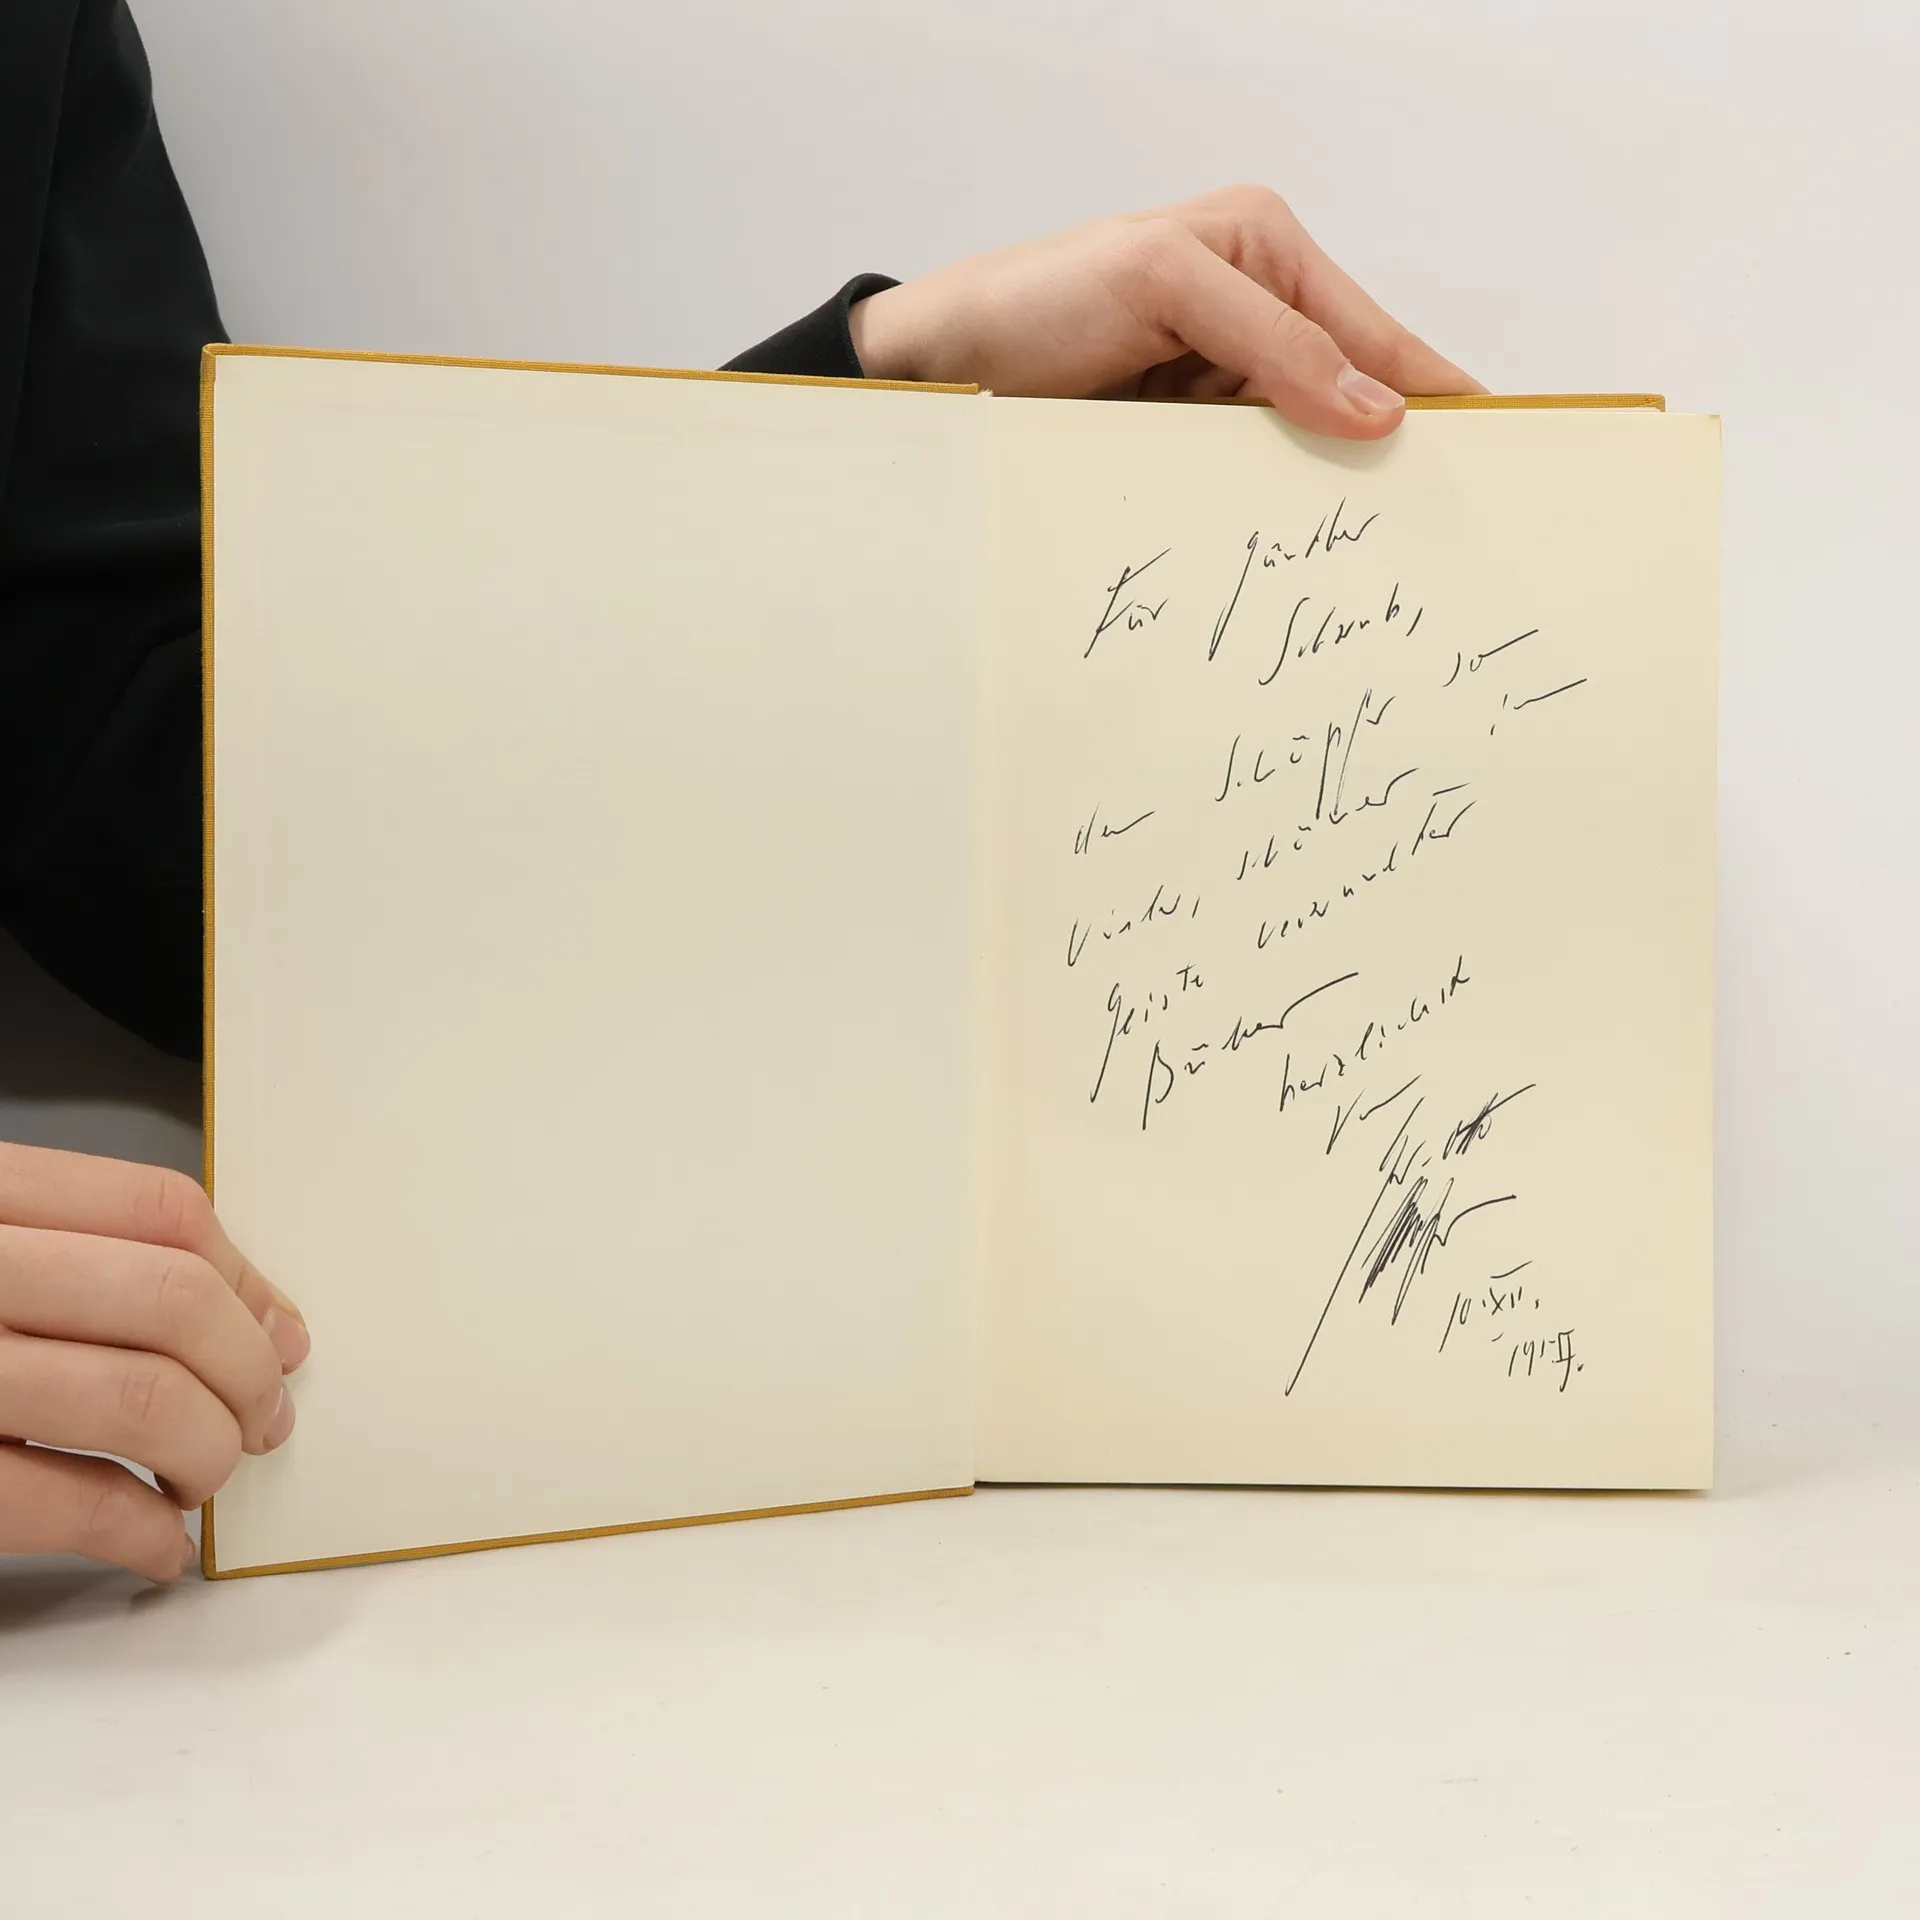 Für Günther
Schwab,
den Schöpfer so
vieler, schöner im
Geiste verwandter
Bücher
herzlichst
von
10.XII.